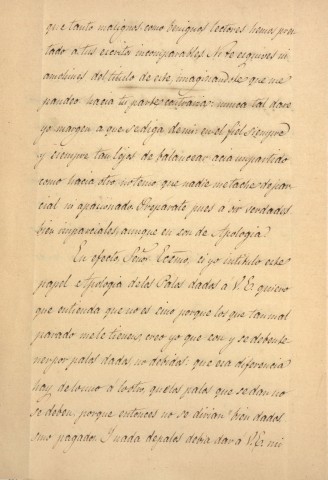 que tanto malignos como benignos lectores hemos pres
tado a tus escritos incomparables. No te esquives ni
amohines del titulo de este, imaginandote que me
pandeo hacia tu parte contraria: nunca tal daré
yo margen a que se diga de mi: en el fiel siempre
y siempre tan lejos de balancear acia un partido
como hacia otro no temo, que nadie me tache de par
cial ni apasionado. Preparate pues a oir verdades
bien imparciales, aunque en son de Apologia.
En efecto, Señor Ecsmo, si yo intitulo este
papel Apologia de los Palos dados a V.E. quiero
que entienda que no es sino porque los que tan mal
parado me le tienen, creo yo que son y se deben te
ner por palos dados, no debidos: que esa diferencia
hay de lo uno á lo otro, que los palos que se dan no
se deben: porque entonces no se dirian bien dados
sino pagados. Y nada de palos debia dar a V.E. mi